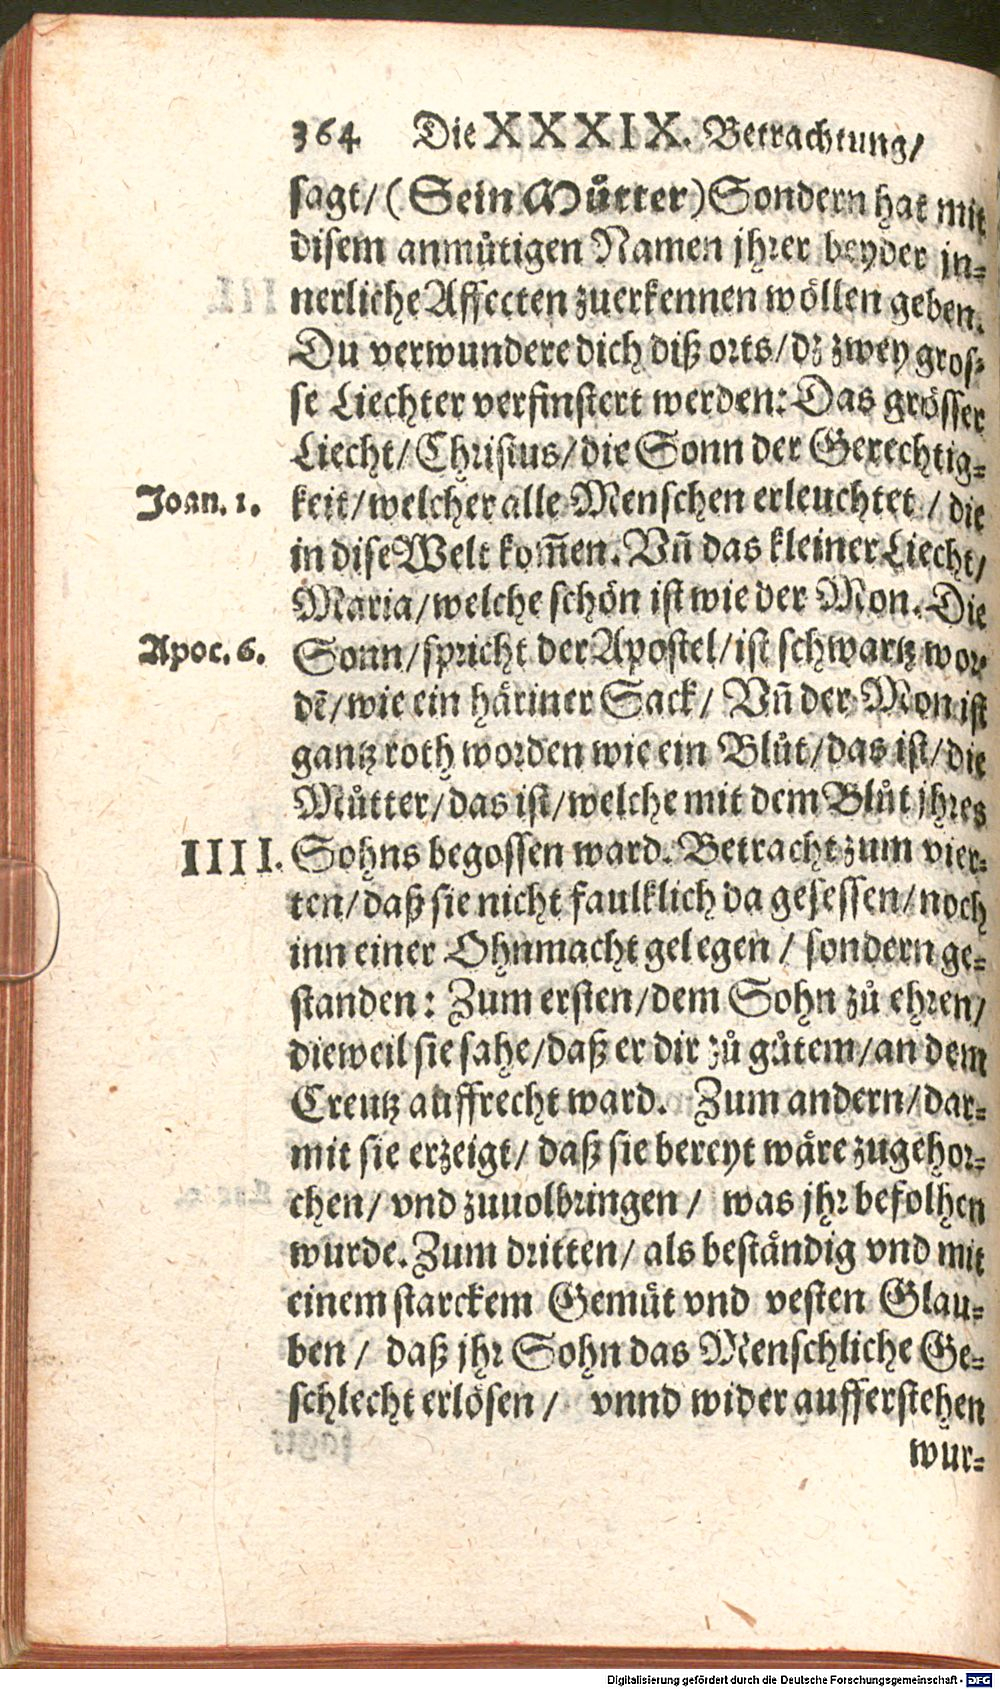 364 Die XXXIX. Betrachtung/
sagt/ (Sein Můtter) Sondern hat mit
disem anmůtigen Namen jhrer beyder in⸗
nerliche Affecten zuerkennen wöllen geben.
Du verwundere dich diß orts/ dz zwey gros⸗
se Liechter verfinstert werden: Das grösser
Liecht/ Christus/ die Sonn der Gerechtig⸗
Joan. 1. keit/ welcher alle Menschen erleuchtet / die
in dise Welt kom̃en. Vñ das kleiner Liecht/
Maria/ welche schön ist wie der Mon. Die
Apoc. 6. Sonn/ spricht der Apostel/ ist schwartz wor⸗
dẽ/ wie ein häriner Sack/ Vñ der Mon ist
gantz roth worden wie ein Blůt/ das ist/ die
Můtter/ das ist/ welche mit dem Blůt jhres
IIII. Sohns begossen ward. Betracht zum vier⸗
ten/ daß sie nicht faulklich da gesessen/ noch
inn einer Ohnmacht gelegen / sondern ge⸗
standen: Zum ersten/ dem Sohn zů ehren/
dieweil sie sahe/ daß er dir zů gůtem/ an dem
Creutz auffrecht ward. Zum andern/ dar⸗
mit sie erzeigt/ daß sie bereyt wäre zugehor⸗
chen/ vnd zuuolbringen / was jhr befolhen
wurde. Zum dritten/ als beständig vnd mit
einem starckem Gemůt vnd vesten Glau⸗
ben / daß jhr Sohn das Menschliche Ge⸗
schlecht erlösen / vnnd wider aufferstehen
wur⸗
Digitalisierung gefördert durch die Deutsche Forschungsgemeinschaft - DFG